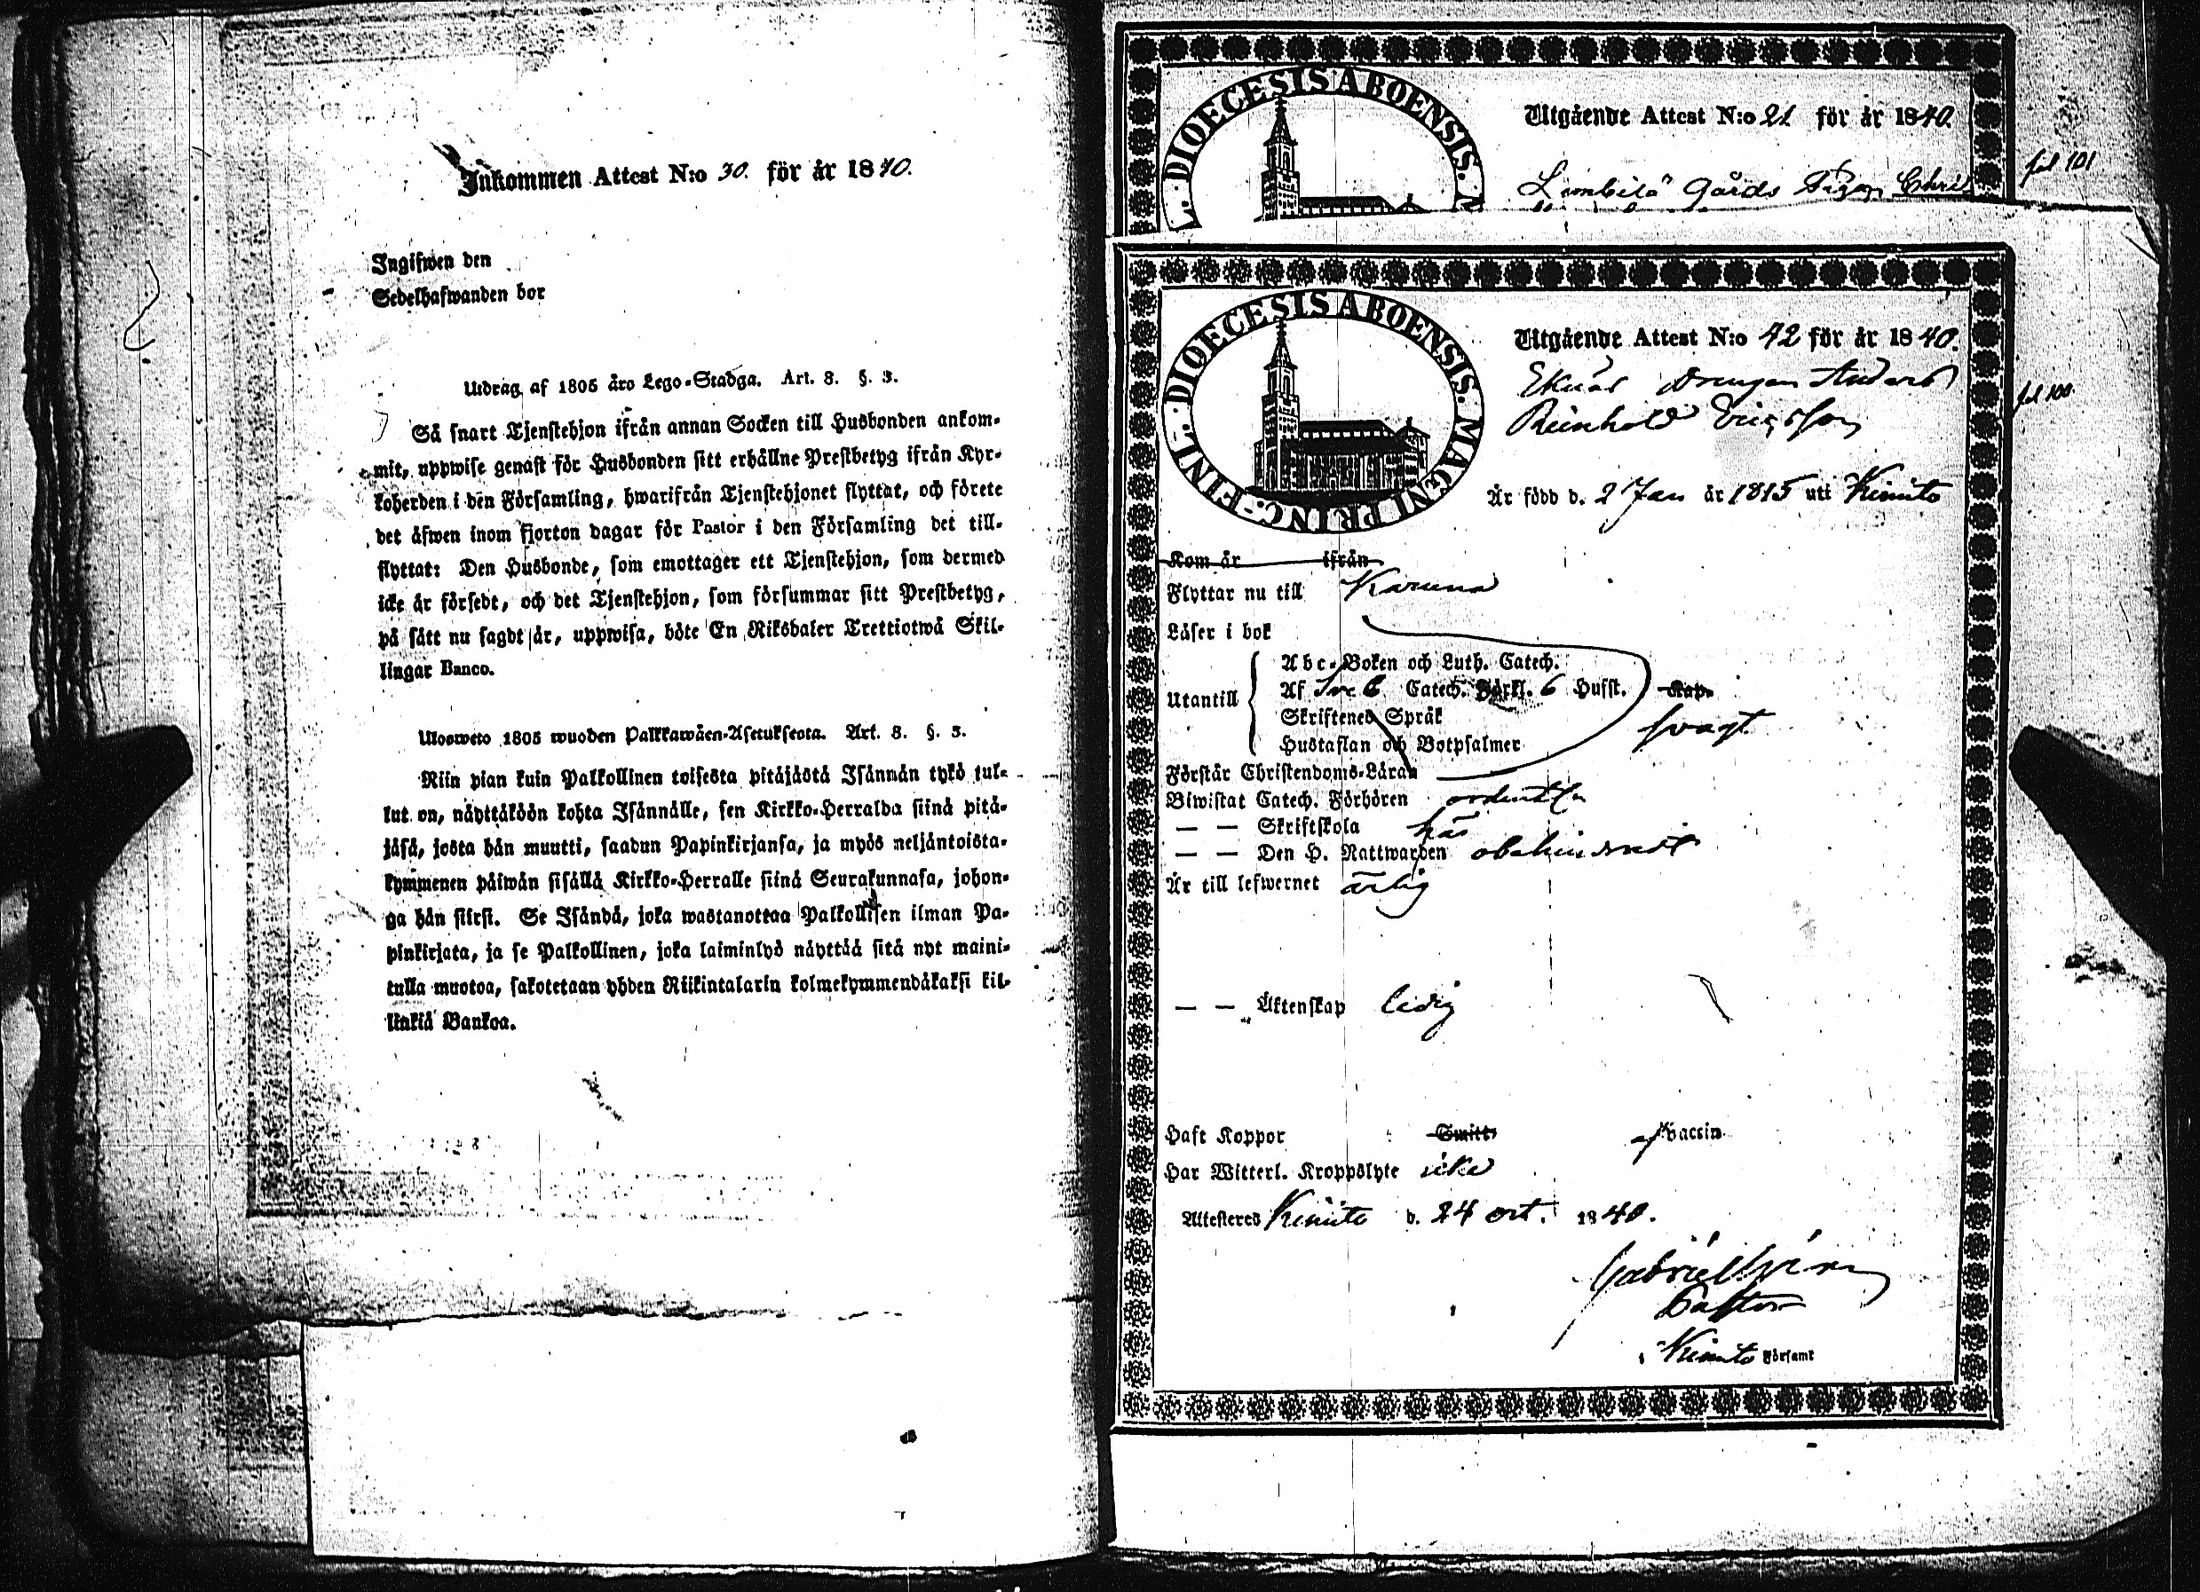 Inkommen Attest N:o 30. för år 1840.
Ingifwen den
Sedelhafwanden bor
Utdrag af 1805 års Lego-Stadga. Art. 8. §. 3.
Så snart Tjenstehjon ifrån annan Socken till Husbonden ankom-
mit, uppwise genast för Husbonden sitt erhållne Prestbetyg ifrån Kyr-
koherden i den Församling, hwarifrån Tjenstehjonet flyttat, och förete
det äfwen inom fjorton dagar för Pastor i den Församling det till-
flyttat: Den Husbonde, som emottager ett Tjenstehjon, som dermed
icke är försedt, och det Tjenstehjon, som försummar sitt Prestbetyg,
på sätt nu sagdt är, uppwisa, böte En Riksdaler Trettiotwå Skil-
lingar Banco.
Ulosweto 1805 wuoden Palkkawäen-Asetuksesta. Art. 8. §. 3.
Niin pian kuin Palkollinen toisesta pitäjästä Isännän tykö tul-
lut on, näyttäköön kohta Isännälle, sen Kirkko-Herralda siinä pitä-
jäsä, josta hän muutti, saadun Papinkirjansa, ja myös neljäntoista-
kymmenen päiwän sisällä Kirkko-Herralle siinä Seurakunnasa, johon-
ga hän siirsi. Se Isändä, joka wastanottaa Palkollisen ilman Pa-
pinkirjata, ja se Palkollinen, joka laiminlyö näyttää sitä nyt maini-
tulla muotoa, sakotetaan yhden Riikintalarin kolmekymmendäkaksi kil-
linkiä Bankoa.
L. DIOECESIS ABOENSIS. M
Utgående Attest N:o 21 för år 1840.
Lembilä Gårds Pigan Chris
fol 101
FINL. DIOECESIS ABOENSIS. MAGNI PRINC.
Utgående Attest N:o 42 för år 1840.
Eknäs Drengen Anders
Reinhold Ericsson
fol 100
Är född d. 2 Jan år 1815 uti Kimito
Kom år ifrån
Flyttar nu till Karuna
Läser i bok
Utantill
Abc-Boken och Luth. Catech.
Af Sv: 6 Catech. Förkl. 6 Hufst. Kap.
Skriftenes Språk
svagt
Hustaflan och Botpsalmer
Förstår Christendoms-Läran
Biwistat Catech. Förhören ordentl.
— — Skriftskola här
— — Den H. Nattwarden obehindradt
Är till lefwernet ärlig
— — Äktenskap ledig
Haft Koppor Smitt af vaccin
Har Witterl. Kroppslyte icke
Attesteras Kimito d. 24 oct. 1840.
Gabriel
Pastor
i Kimito Församl